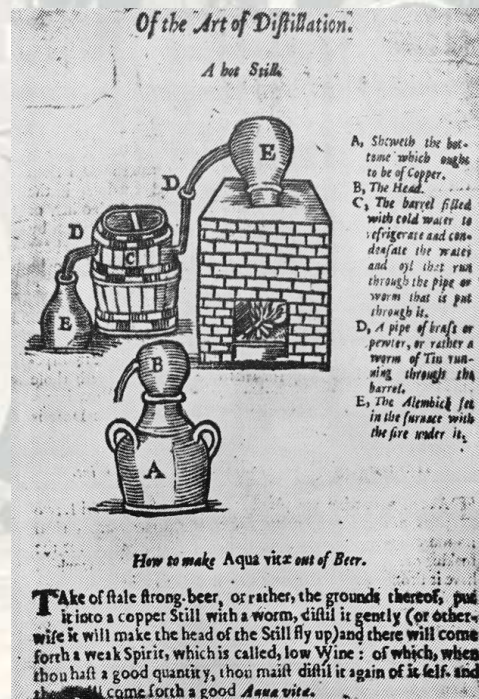 Of the Art of Diſtillation.
A hot Still.
A, Sheweth the bot-
tome which ought
to be of Copper.
B, The Head.
C, The barrel filled
with cold water to
refrigerate and con-
denſate the water
and oyl that run
through the pipe or
worm that is put
through it.
D, A pipe of braſs or
pewter, or rather a
worm of Tin run-
ning through the
barrel.
E, The Alembick ſet
in the furnace with
the fire under it,
E
D
D
C
E
B
A
How to make Aqua vitæ out of Beer.
TAke of ſtale ſtrong-beer, or rather, the grounds thereof, put
it into a copper Still with a worm, diſtil it gently (or other-
wiſe it will make the head of the Still fly up) and there will come
forth a weak Spirit, which is called, low Wine : of which, when
thou haſt a good quantity, thou maiſt diſtil it again of it ſelf. and
come forth a good Aqua vitæ.